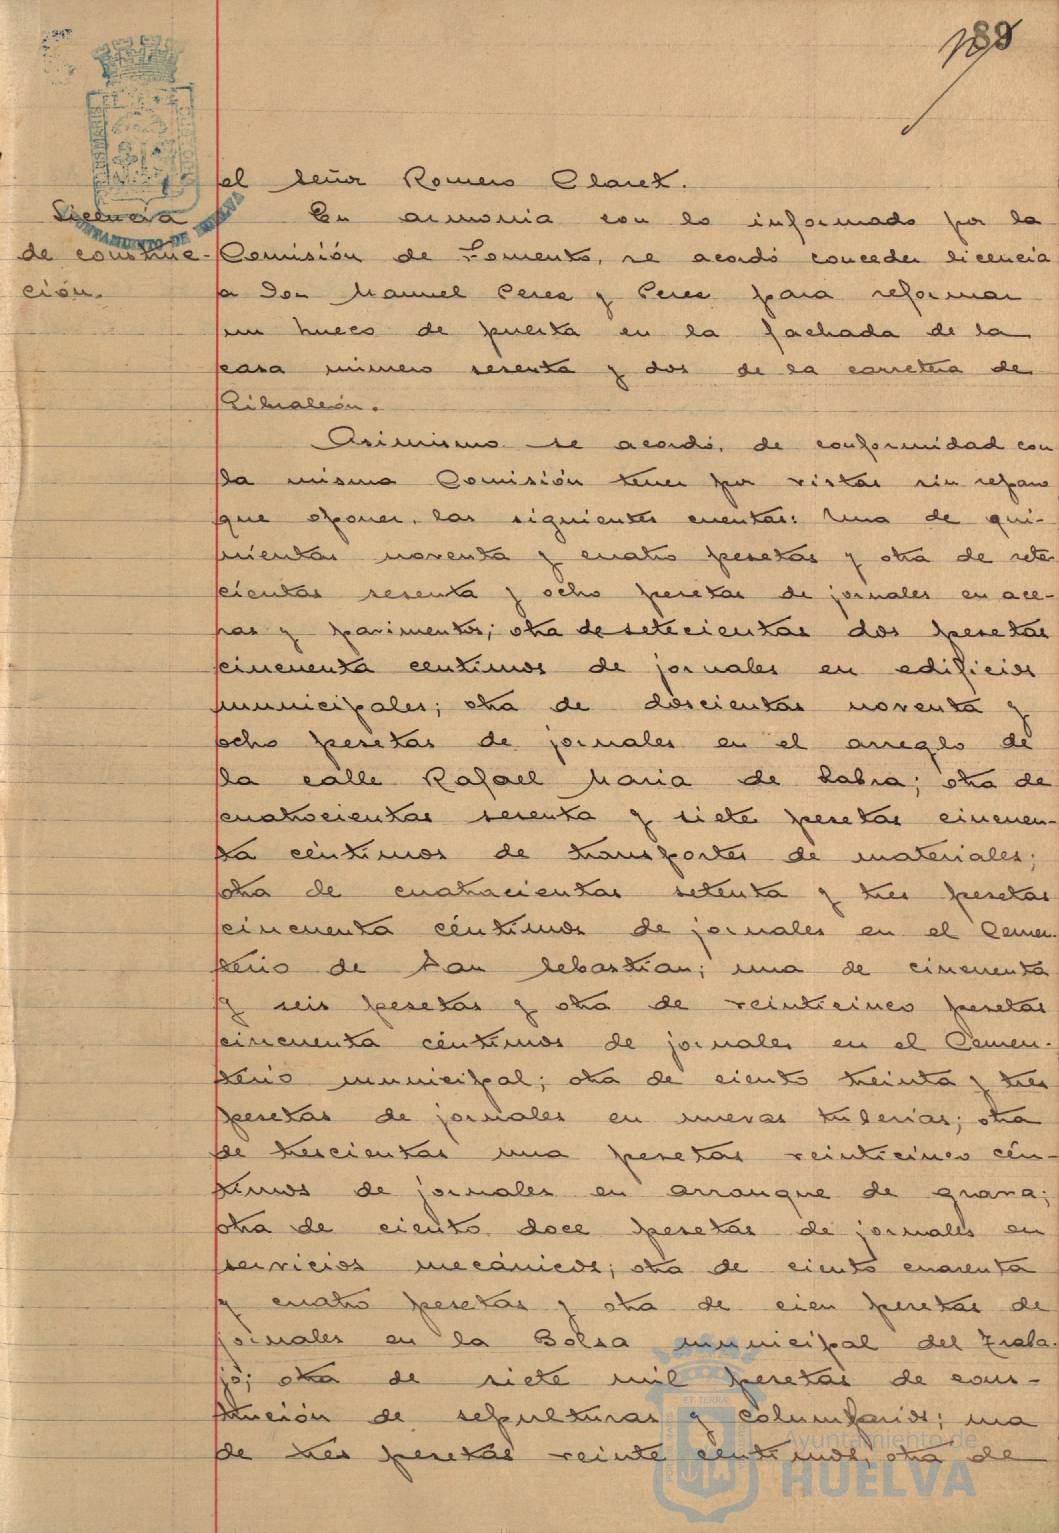 89
el Señor Romero Claret.
Licencia
de construc-
ción.
AYUNTAMIENTO DE HUELVA
En armonia con lo informado por la
Comisión de Fomento, se acordó conceder licencia
a Don Manuel Perez y Perez para reformar
un hueco de puerta en la fachada de la
casa número sesenta y dos de la carretera de
Gibraleón.
Asimismo se acordó, de conformidad con
la misma Comisión tener por vistas sin reparo
que oponer, las siguientes cuentas: Una de qui-
nientas noventa y cuatro pesetas y otra de sete-
cientas sesenta y ocho pesetas de jornales en ace-
ras y pavimentos; otra de setecientas dos pesetas
cincuenta centimos de jornales en edificios
municipales; otra de doscientas noventa y
ocho pesetas de jornales en el arreglo de
la calle Rafael Maria de Labra; otra de
cuatrocientas sesenta y siete pesetas cincuen-
ta céntimos de transportes de materiales;
otra de cuatrocientas setenta y tres pesetas
cincuenta céntimos de jornales en el Cemen-
terio de San Sebastian; una de cincuenta
y seis pesetas y otra de veinticinco pesetas
cincuenta céntimos de jornales en el Cemen-
terio municipal; otra de ciento treinta y tres
pesetas de jornales en nuevas tuberias; otra
de trescientas una pesetas veinticinco cén-
timos de jornales en arranque de grava;
otra de ciento doce pesetas de jornales en
servicios mecánicos; otra de ciento cuarenta
y cuatro pesetas y otra de cien pesetas de
jornales en la Bolsa municipal del Traba-
jo; otra de siete mil pesetas de cons-
trución de sepulturas y columbarios; una
de tres pesetas veinte centimos; otra de
Ayuntamiento de
HUELVA